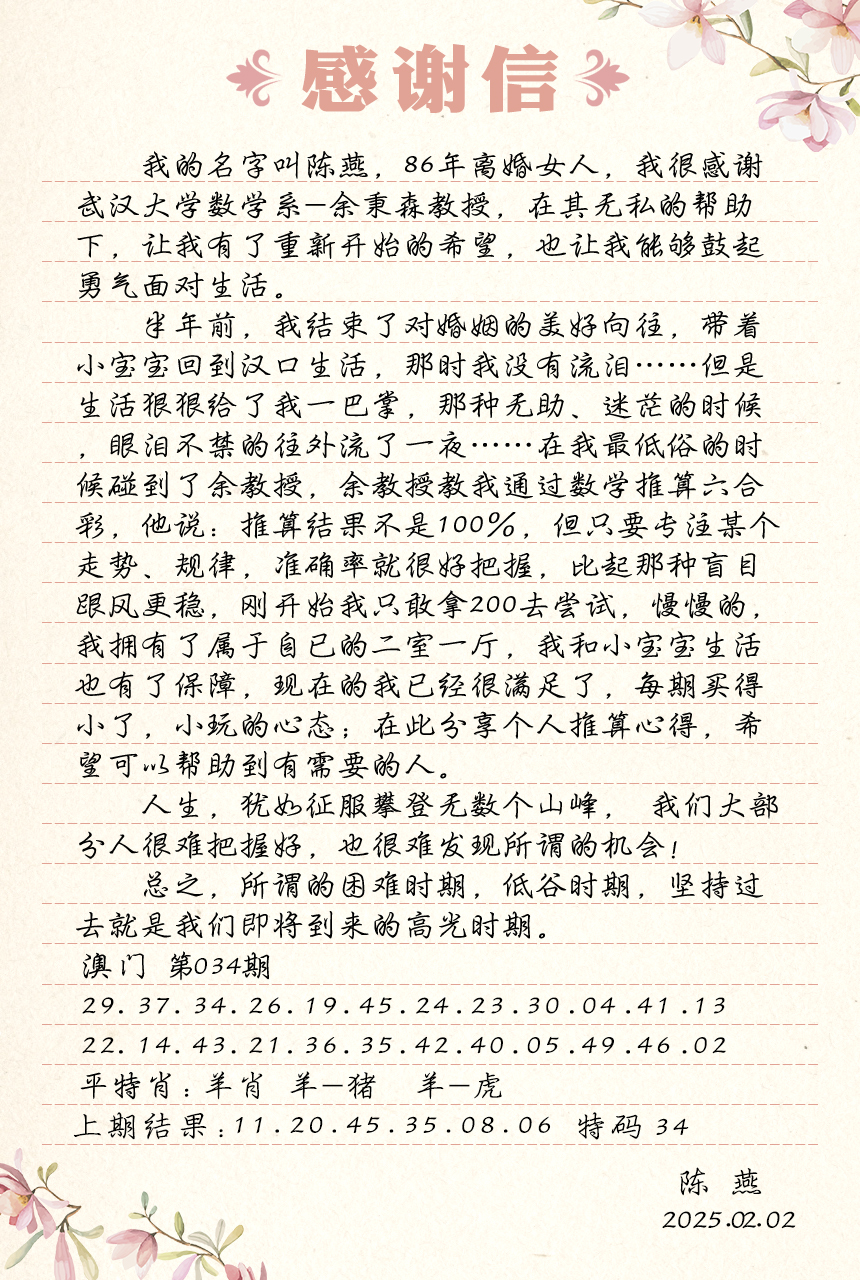 感谢信
我的名字叫陈燕，86年离婚女人，我很感谢
武汉大学数学系—余秉森教授，在其无私的帮助
下，让我有了重新开始的希望，也让我能够鼓起
勇气面对生活。
半年前，我结束了对婚姻的美好向往，带着
小宝宝回到汉口生活，那时我没有流泪……但是
生活狠狠给了我一巴掌，那种无助、迷茫的时候
，眼泪不禁的往外流了一夜……在我最低俗的时
候碰到了余教授，余教授教我通过数学推算六合
彩，他说：推算结果不是100%，但只要专注某个
走势、规律，准确率就很好把握，比起那种盲目
跟风更稳，刚开始我只敢拿200去尝试，慢慢的，
我拥有了属于自已的二室一厅，我和小宝宝生活
也有了保障，现在的我已经很满足了，每期买得
小了，小玩的心态；在此分享个人推算心得，希
望可以帮助到有需要的人。
人生，犹如征服攀登无数个山峰， 我们大部
分人很难把握好，也很难发现所谓的机会！
总之，所谓的困难时期，低谷时期，坚持过
去就是我们即将到来的高光时期。
澳门 第034期
29.37.34.26.19.45.24.23.30.04.41.13
22.14.43.21.36.35.42.40.05.49.46.02
平特肖：羊肖 羊—猪 羊—虎
上期结果：11.20.45.35.08.06 特码 34
陈 燕
2025.02.02